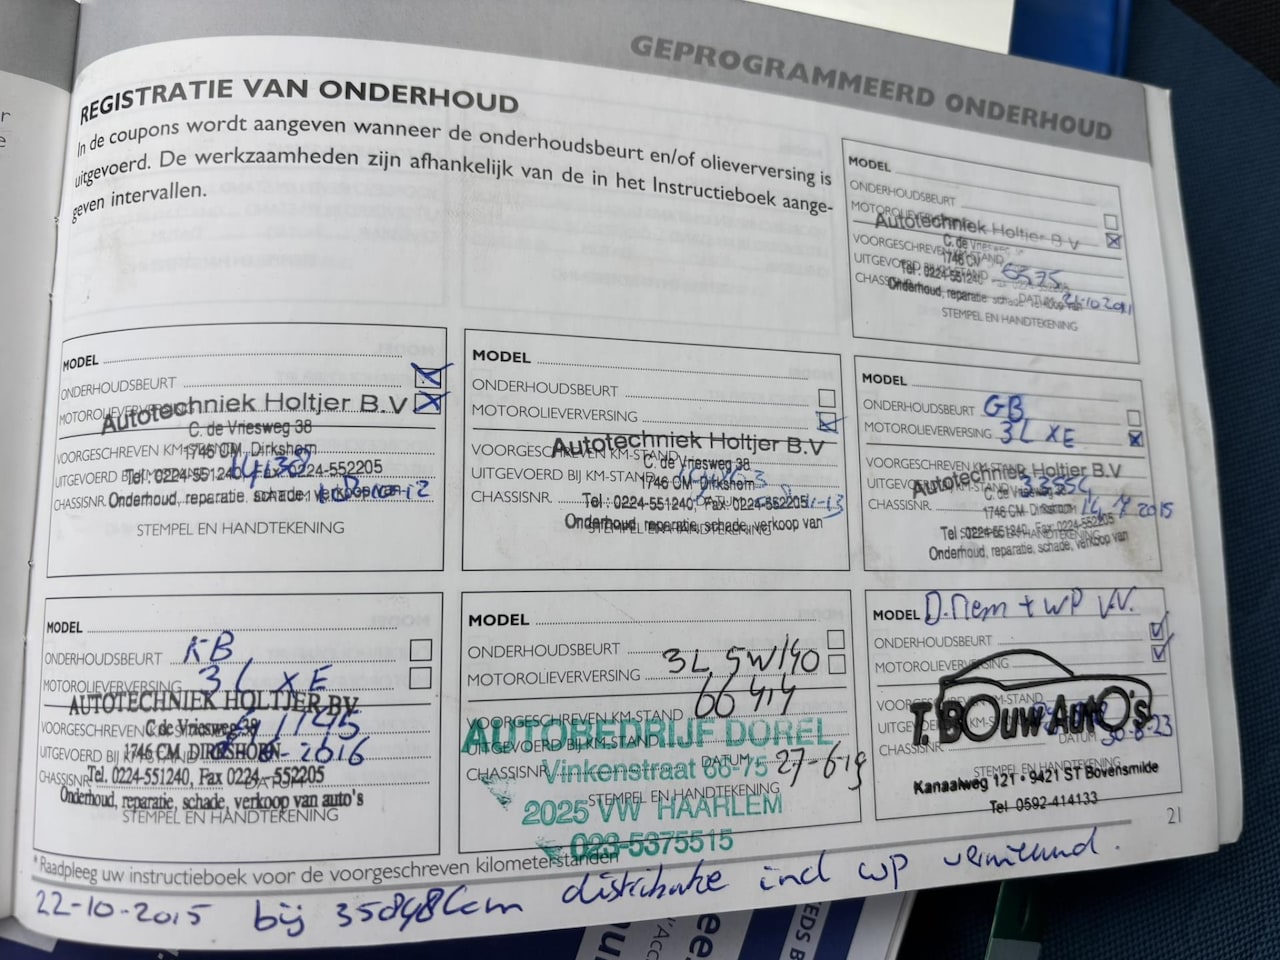 GEPROGRAMMEERD ONDERHOUD
REGISTRATIE VAN ONDERHOUD
In de coupons wordt aangeven wanneer de onderhoudsbeurt en/of olieverversing is
uitgevoerd. De werkzaamheden zijn afhankelijk van de in het Instructieboek aange-
geven intervallen.
MODEL
ONDERHOUDSBEURT
MOTOROLIEVERVERSING
Autotechniek Holtjer B V
C. de Vriesweg
VOORGESCHREVEN KM-STAND
1746 CM
UITGEVOERD BIJ KM-STAND
Tel : 0224-551240
CHASSISNR.
Onderhoud, reparatie
DATUM 21-10 2011
STEMPEL EN HANDTEKENING
MODEL
ONDERHOUDSBEURT
MOTOROLIEVERVERSING
Autotechniek Holtjer B.V
C. de Vriesweg 38
VOORGESCHREVEN KM-STAND
1746 CM Dirkshorn
UITGEVOERD BIJ KM-STAND
Tel : 0224-551240, Fax 0224-552205
CHASSISNR.
Onderhoud, reparatie, schade, verkoop van
STEMPEL EN HANDTEKENING
MODEL
ONDERHOUDSBEURT
MOTOROLIEVERVERSING
Autotechniek Holtjer B.V
VOORGESCHREVEN KM-STAND
C. de Vriesweg 38
UITGEVOERD BIJ KM-STAND
1746 CM Dirkshorn
CHASSISNR.
Tel : 0224-551240, Fax 0224-552205
Onderhoud, reparatie, schade, verkoop van
STEMPEL EN HANDTEKENING
MODEL
ONDERHOUDSBEURT GB
MOTOROLIEVERVERSING 3L XE
VOORGESCHREVEN KM-STAND
Autotechniek Holtjer B.V
UITGEVOERD BIJ KM-STAND
C. de Vriesweg 38
CHASSISNR.
1746 CM Dirkshorn
2015
Tel : 0224-551240, Fax 0224-552205
Onderhoud, reparatie, schade, verkoop van
MODEL
ONDERHOUDSBEURT KB
MOTOROLIEVERVERSING 3L XE
AUTOTECHNIEK HOLTJER BV.
VOORGESCHREVEN KM-STAND
C de Vriesweg 38
UITGEVOERD BIJ
1746 CM DIRKSHORN
2016
CHASSISNR.
Tel. 0224-551240, Fax 0224-552205
DATUM
Onderhoud, reparatie, schade, verkoop van auto's
STEMPEL EN HANDTEKENING
MODEL
ONDERHOUDSBEURT
3L 5W40
MOTOROLIEVERVERSING
66414
VOORGESCHREVEN KM-STAND
AUTOBEDRIJF DOREL
UITGEVOERD BIJ KM-STAND
Vinkenstraat 66-75
CHASSISNR.
DATUM 27-6-19
STEMPEL EN HANDTEKENING
2025 VW HAARLEM
023-5375515
MODEL D.riem + WP VV.
ONDERHOUDSBEURT
MOTOROLIEVERVERSING
VOORGESCHREVEN KM-STAND
T. BOuw AutO's
UITGEVOERD BIJ KM-STAND
CHASSISNR.
DATUM 30-6-23
STEMPEL EN HANDTEKENING
Kanaalweg 121 - 9421 ST Bovensmilde
Tel 0592-414133
21
* Raadpleeg uw instructieboek voor de voorgeschreven kilometerstanden
22-10-2015 bij 35848km distributie incl wp vernieuwd.